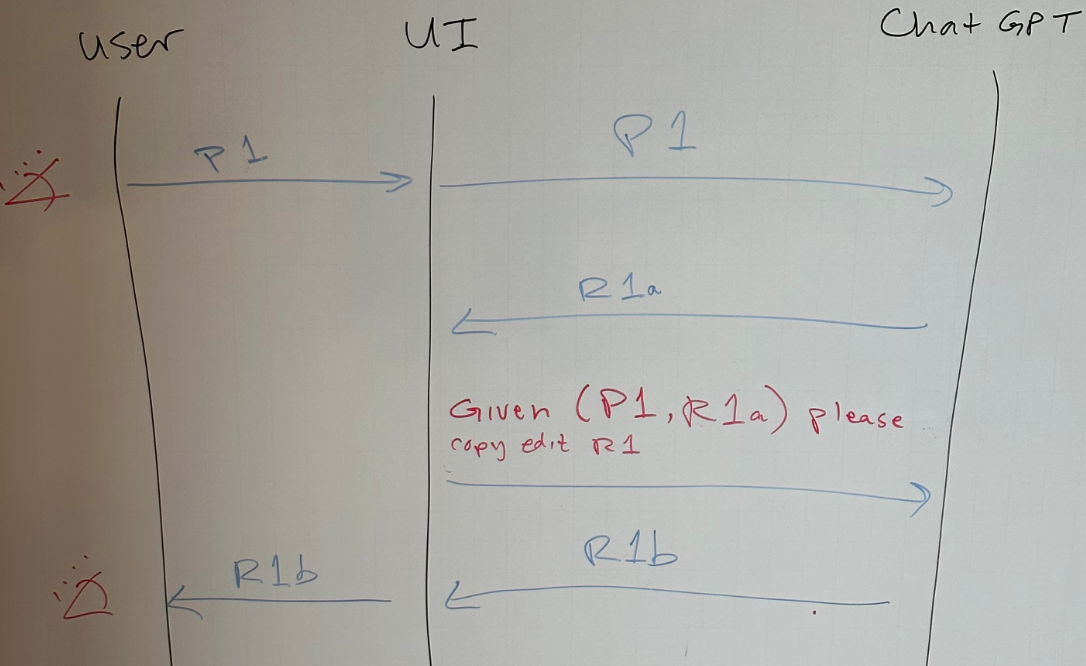 user UI Chat GPT
P1 P1
R1a
Given (P1, R1a) please
copy edit R1
R1b R1b